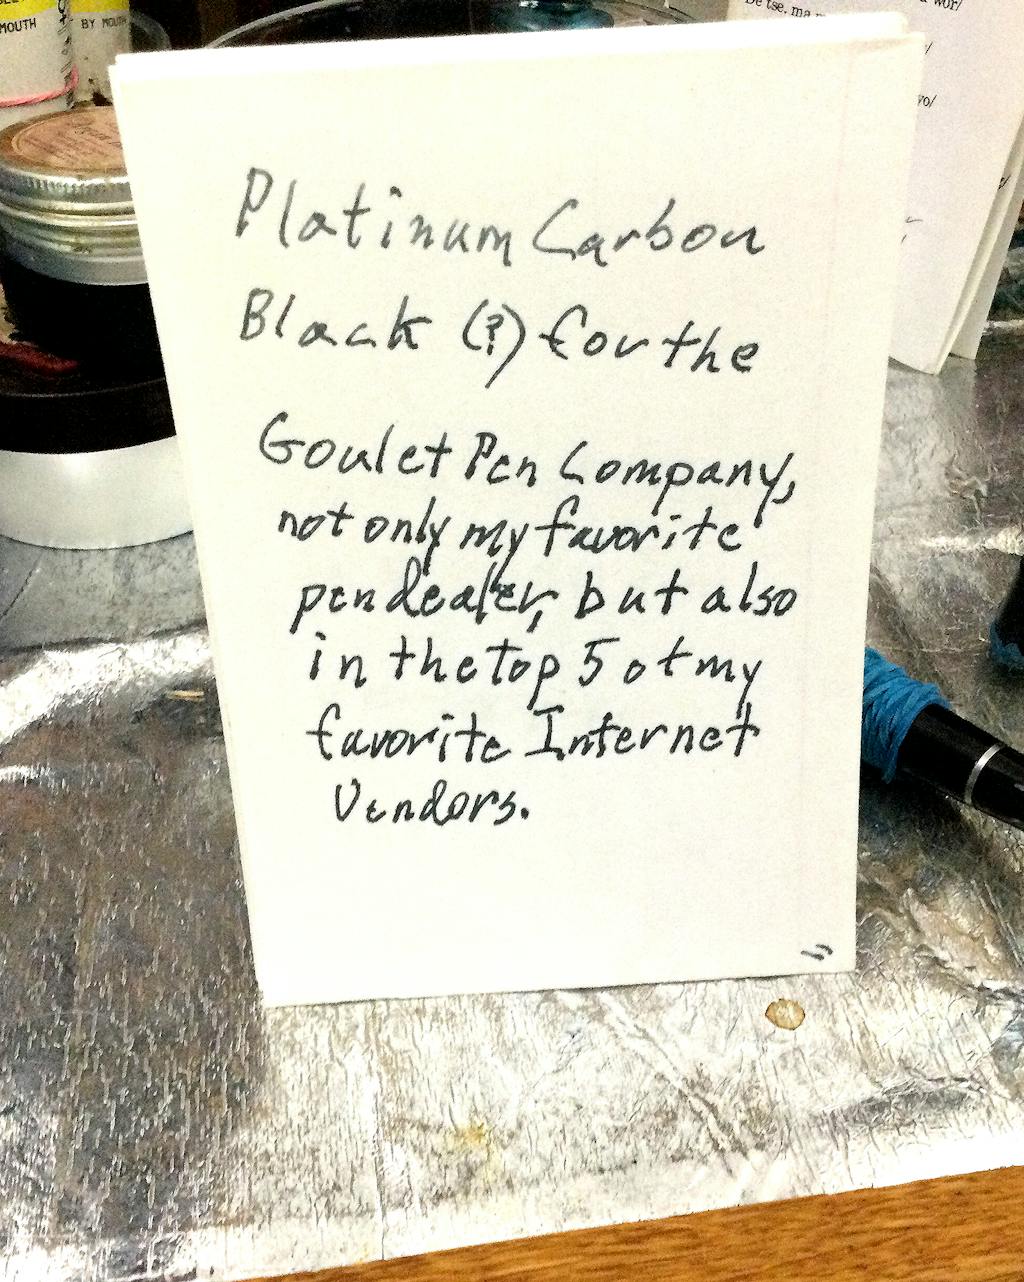 MOUTH
BY MOUTH
Platinum Carbon
Black (?) for the
Goulet Pen Company,
not only my favorite
pen dealer, but also
in the top 5 of my
favorite Internet
Vendors.